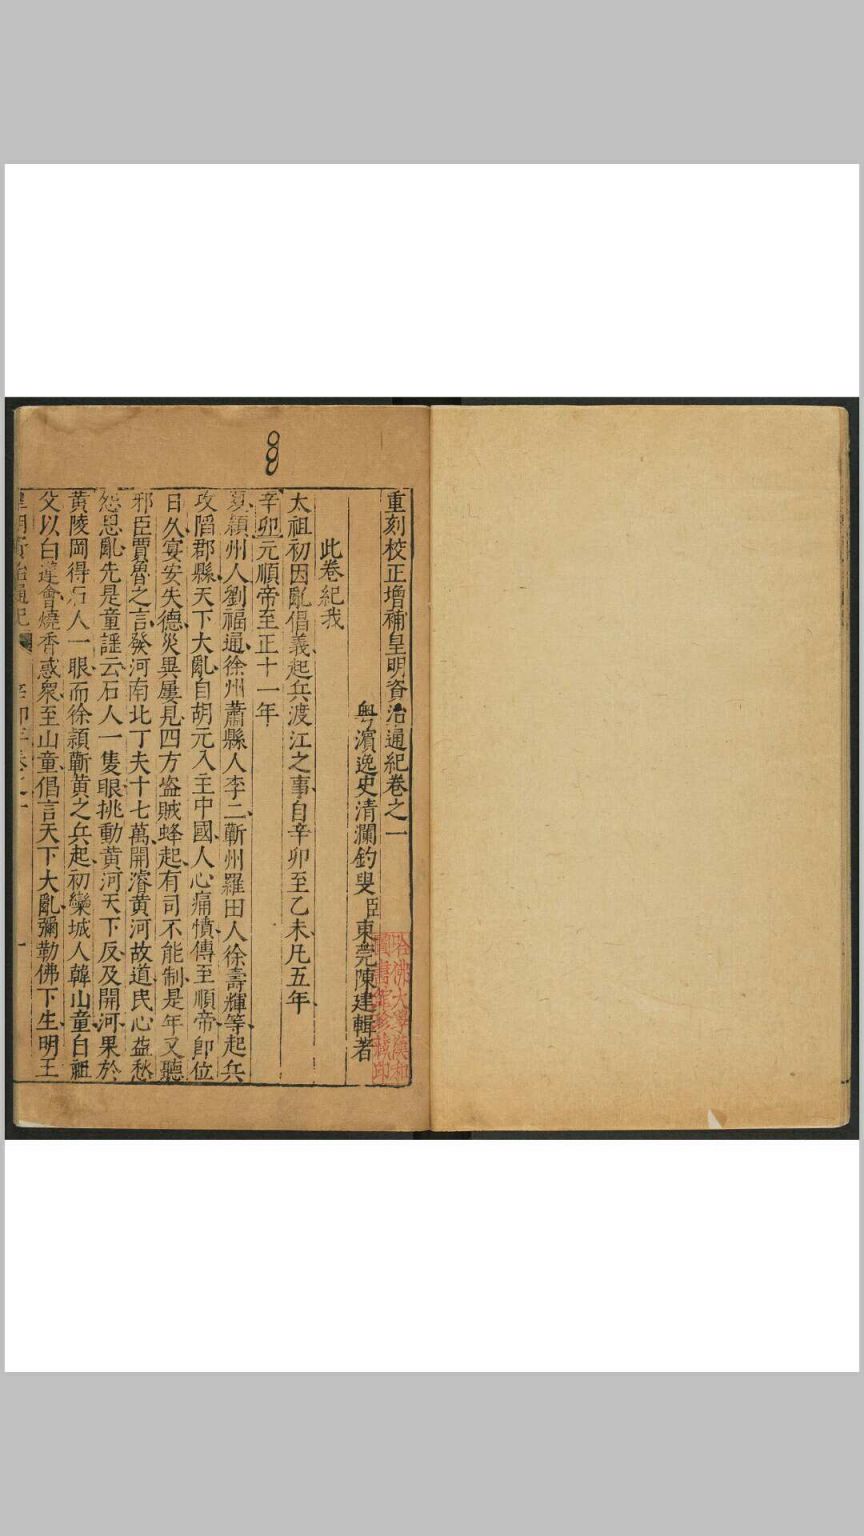 重刻校正增補皇明資治通紀卷之一
粤濱逸史清瀾釣叟臣東莞陳建輯著
此卷紀我
太祖初因亂倡義起兵渡江之事自辛卯至乙未凡五年
辛卯元順帝至正十一年
夏潁州人劉福通徐州蕭縣人李二蘄州羅田人徐壽輝等起兵
攻陷郡縣天下大亂自胡元入主中國人心痛憤傳至順帝卽位
日久宴安失德災異屢見四方盜賊蜂起有司不能制是年又聽
邪臣賈魯之言發河南北丁夫十七萬開濬黄河故道民心益愁
怨思亂先是童謡云石人一隻眼挑動黄河天下反及開河果於
黄陵岡得石人一眼而徐潁蘄黄之兵起初欒城人韓山童自祖
父以白蓮會燒香惑衆至山童倡言天下大亂彌勒佛下生明王
皇明資治通紀 辛卯年卷之一 一
哈佛大學漢和
圖書館珍藏印
8